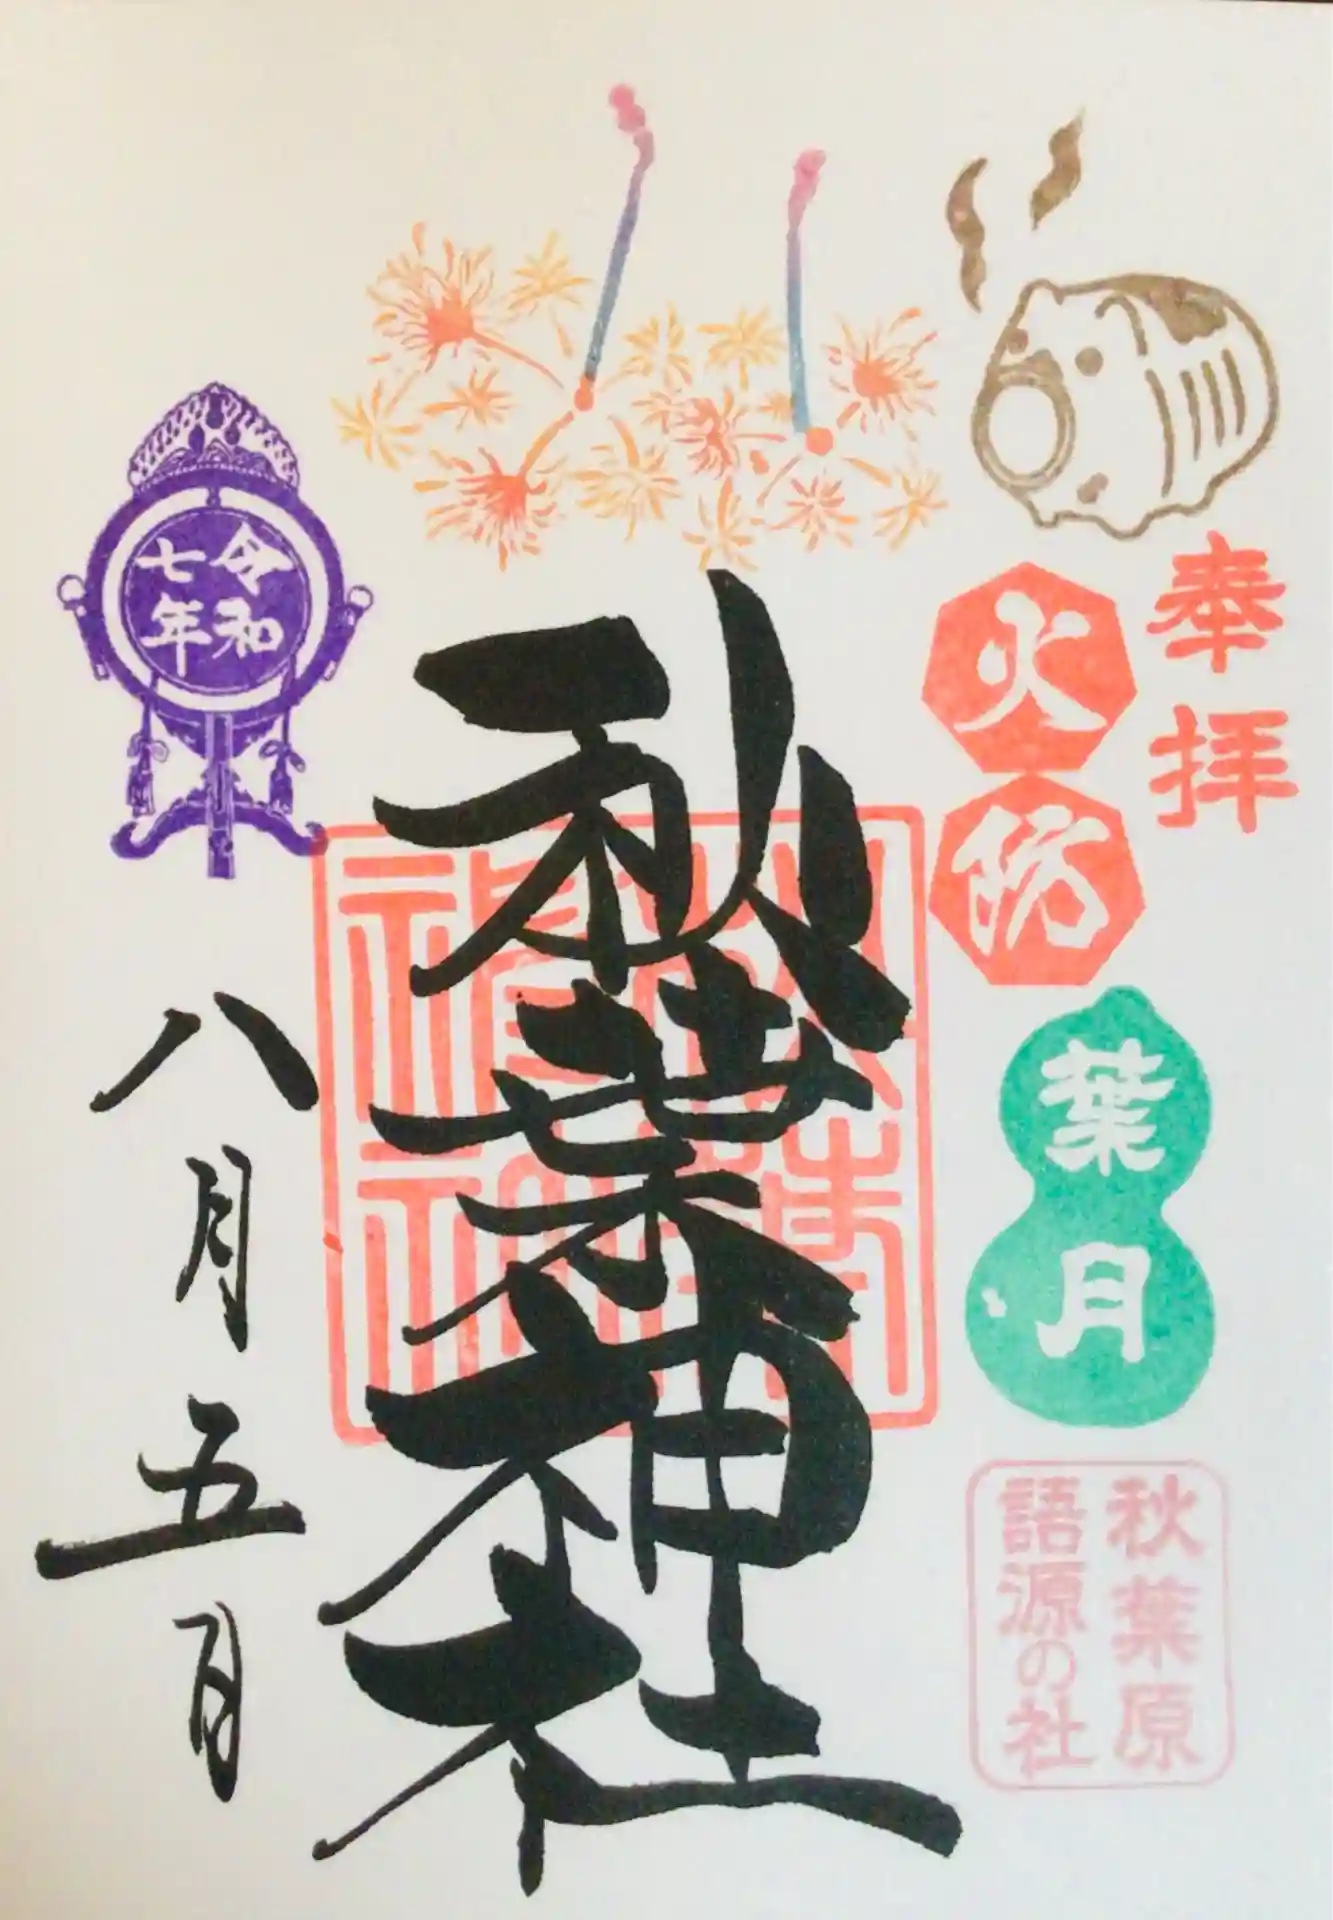 奉拝
火防
葉月
秋葉原
語源の社
秋葉神社
令和
七年
八月五日